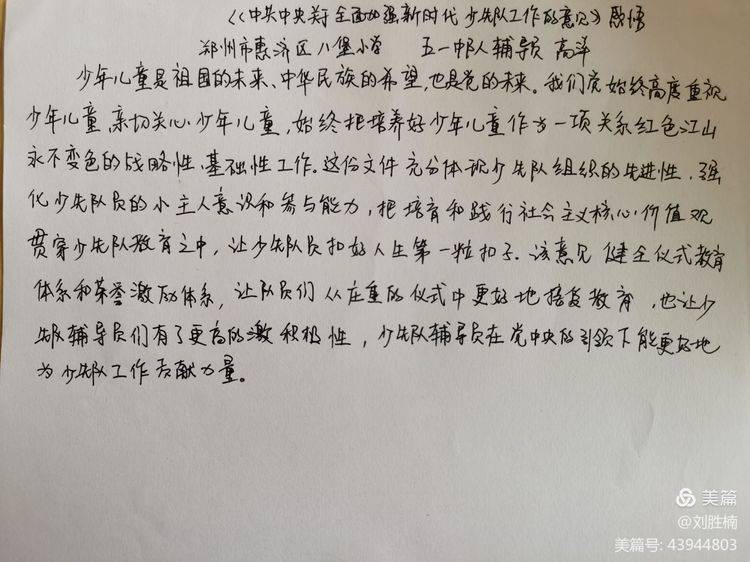 《中共中央关于全面加强新时代少先队工作的意见》感悟
郑州市惠济区八堡小学 五一中队辅导员 高洋
少年儿童是祖国的未来、中华民族的希望,也是党的未来。我们党始终高度重视
少年儿童,亲切关心少年儿童,始终把培养好少年儿童作为一项关系红色江山
永不变色的战略性、基础性工作。这份文件充分体现少先队组织的先进性,强
化少先队员的小主人意识和参与能力,把培育和践行社会主义核心价值观
贯穿少先队教育之中,让少先队员扣好人生第一粒扣子。该意见健全仪式教育
体系和荣誉激励体系,让队员们从庄重的仪式中更好地接受教育,也让少
先队辅导员们有了更高的激积极性,少先队辅导员在党中央的引领下能更好地
为少先队工作贡献力量。
美篇
@刘胜楠
美篇号: 43944803